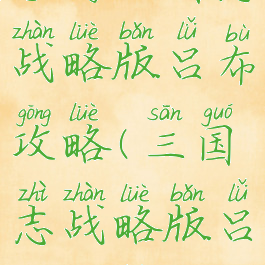 zhàn lüè bǎn lǚ bù
战略版吕布
gōng lüè sān guó
攻略(三国
zhì zhàn lüè bǎn lǚ
志战略版吕